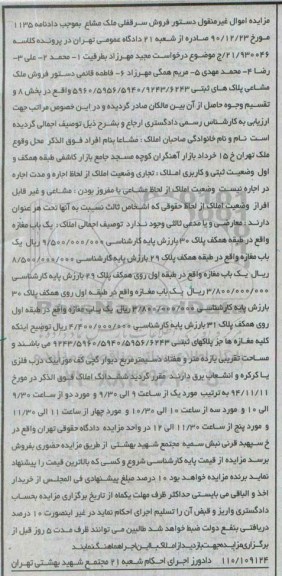 مزایده اموال غیرمنقول دستور فروش سرقفلی ملک مشاع بموجب دادنامه ۱۱۳۵
مورخ ۹۰/۱۲/۲۳ صادره از شعبه ۲۱ دادگاه عمومی تهران در پرونده کلاسه
۲۱/۹۳۰۰۴۶/ج موضوع درخواست مجید مهرزاد بطرفیت ۱- محمد ۲- علی ۳-
رضا ۴- محمد مهدی ۵- مریم همگی مهرزاد ۶- فاطمه قائمی دستور فروش ملک
مشاعی پلاک های ثبتی ۵۹۶۰/۵۹۵۶/۵۹۴۰/۹۲۴۳/۶۲۴۳ واقع در بخش ۸ و
تقسیم وجوه حاصل از آن بین مالکان صادر گردیده و در این خصوص مراتب جهت
ارزیابی به کارشناس رسمی دادگستری ارجاع و بشرح ذیل توصیف اجمالی گردیده
است نام و نام خانوادگی صاحبان املاک : مشاعا بنام افراد فوق الذکر محل وقوع
ملک تهران خ ۱۵ خرداد بازار آهنگران کوچه مسجد جامع بازار کاشفی طبقه همکف و
اول وضعیت ثبتی و کاربری املاک : تجاری وضعیت املاک از لحاظ اجاره و مدت اجاره
در اجاره نیست وضعیت املاک از لحاظ مشاعی یا مفروز بودن : مشاعی و غیر قابل
افراز وضعیت املاک از لحاظ حقوقی که اشخاص ثالث نسبت به آنها تحت هر عنوان
دارند : معارضی و یا مدعی ثالثی وجود ندارد توصیف اجمالی املاک : یک باب مغازه
واقع در طبقه همکف پلاک ۳۰ بارزش پایه کارشناسی ۹/۵۰۰/۰۰۰/۰۰۰ ریال یک
باب مغازه واقع در طبقه همکف پلاک ۲۹ بارزش پایه کارشناسی ۸/۵۰۰/۰۰۰/۰۰۰
ریال یک باب مغازه واقع در طبقه اول روی همکف پلاک ۲۹ بارزش پایه کارشناسی
۳/۸۰۰/۰۰۰/۰۰۰ ریال یک باب مغازه واقع در طبقه اول روی همکف پلاک ۳۰
بارزش پایه کارشناسی ۳/۸۰۰/۰۰۰/۰۰۰ ریال یک باب مغازه واقع در طبقه اول
روی همکف پلاک ۳۱ بارزش پایه کارشناسی ۴/۲۰۰/۰۰۰/۰۰۰ ریال توضیح اینکه
کلیه مغازه ها جز پلاکهای ثبتی ۹۲۴۳/۵۹۶۰/۵۹۴۰/۵۹۵۶/۶۲۴۳ می باشند و
مساحت تقریبی یازده متر و هفتاد دسیمترمربع دیوار گچی کف موزاییک درب فلزی
یا کرکره و انشعاب برق دارند مقرر گردید ششدانگ املاک فوق الذکر در مورخ
۹۴/۱۱/۱۱ به ترتیب مورد یک از ساعت ۹ الی ۹/۳۰ و مورد دو از ساعت ۹/۳۰
الی ۱۰ و مورد سه از ساعت ۱۰ الی ۱۰/۳۰ و مورد چهار از ساعت ۱۱ الی ۱۱/۳۰
و مورد پنج از ساعت ۱۱/۳۰ الی ۱۲ در واحد مزایده دادگاه حقوقی تهران واقع در
خ سپهبد قرنی نبش سمیه مجتمع شهید بهشتی از طریق مزایده حضوری بفروش
برسد مزایده از قیمت پایه کارشناسی شروع و کسی که بالاترین قیمت را پیشنهاد
نماید برنده مزایده خواهد بود ۱۰ درصد مبلغ پیشنهادی فی المجلس از خریدار
اخذ و الباقی می بایستی حداکثر ظرف مهلت یکماه از تاریخ برگزاری مزایده بحساب
دادگستری واریز و قبض آن را تسلیم اجرای احکام نماید در غیر اینصورت ۱۰ درصد
دریافتی بنفع دولت ضبط خواهد شد طالبین می توانند ظرف مدت ۵ روز قبل از
برگزاری مزایده جهت بازدید از املاک باین اجرا هماهنگ نمایند
۱۱۰/۱۰۹۱۲۴ دادورز اجرای احکام شعبه ۲۱ مجتمع شهید بهشتی تهران